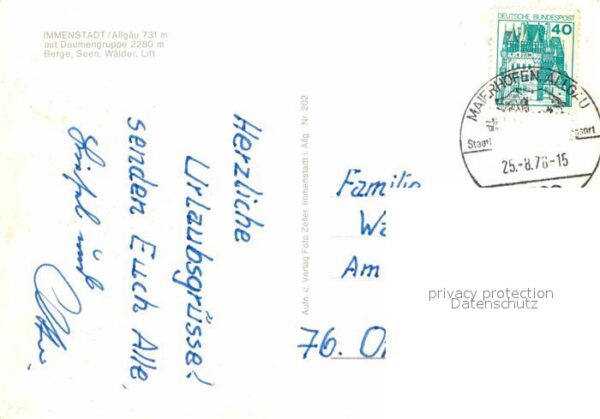 IMMENSTADT/Allgäu 731 m
mit Daumengruppe 2280 m
Berge, Seen, Wälder, Lift
Herzliche
Urlaubsgrüsse!
senden Euch Alle,
Aufn. u. Verlag Foto Zeller, Immenstadt i. Allg. Nr. 202
DEUTSCHE BUNDESPOST
40
MAIERHÖFEN, ALLGÄU
Staatl
25.-8.78-15
Familie
Wa
Am
76. O
privacy protection
Datenschutz